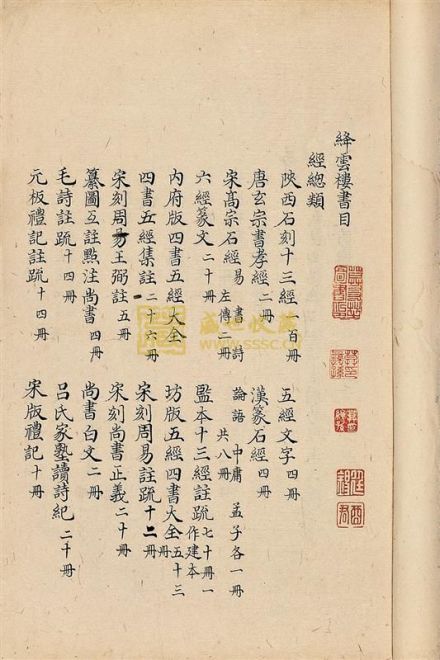 絳雲樓書目
經總類
陝西石刻十三經 一百冊 五經文字 四冊
唐玄宗書孝經 二冊 漢篆石經 四冊
宋髙宗石經 易 書 詩 左傳 冊 論語 中庸 孟子各一冊 共八冊
六經篆文 二十冊 監本十三經註疏 七十冊一作建本
內府版四書五經大全 坊版五經四書大全 五十三冊
四書五經集註 二十冊 宋刻周易註疏 十二冊
宋刻周易王弼註 五冊 宋刻尚書正義 二十冊
纂圖互註點注尚書 四冊 尚書白文 二冊
毛詩註疏 十四冊 呂氏家塾讀詩紀 二十冊
元板禮記註疏 十四冊 宋版禮記 十冊
盛世收藏
www.sssc.cn